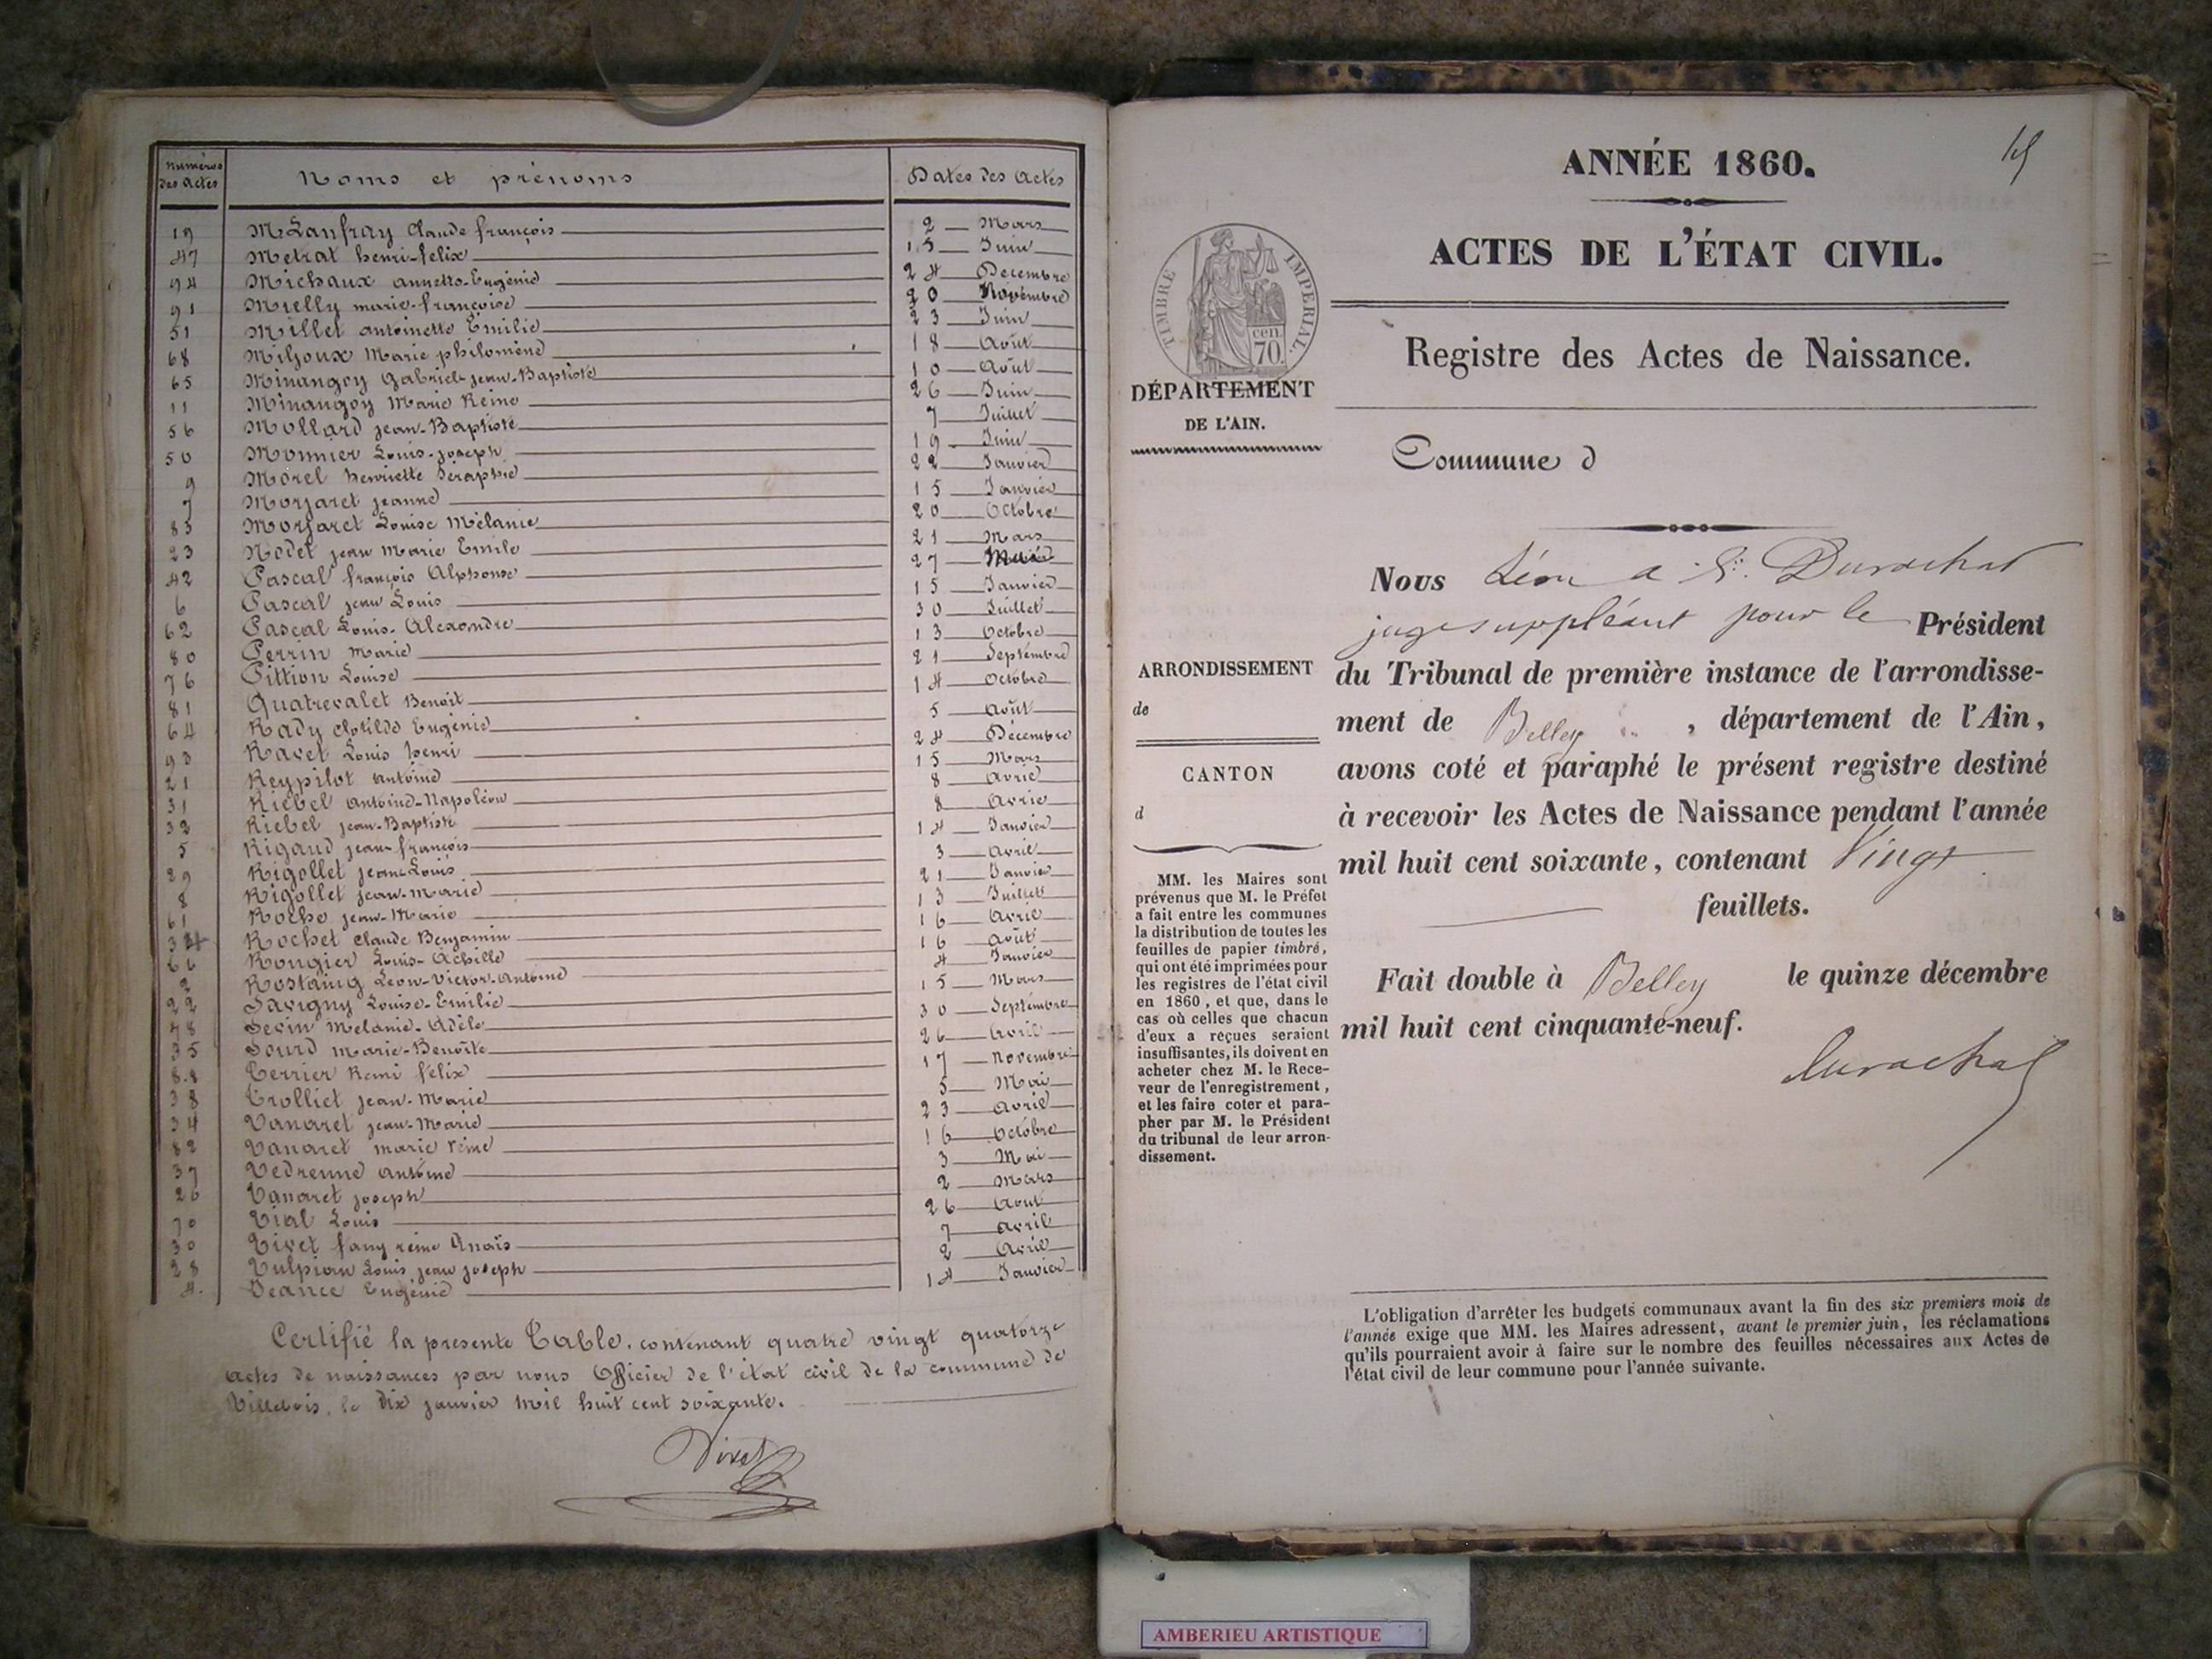 Numéros des Actes Noms et prénoms Dates des Actes
19 Mlanfray Claude françois 2 Mars
47 Metrat henri-felix 15 Juin
94 Michaux annette-Eugénie 24 Decembre
91 Mielly marie-françoise 20 Novembre
51 Millet antoinette Emilie 23 Juin
68 Miljoux Marie philomène 18 Août
65 Minangoy Gabriel-jean-Baptiste 10 Août
11 Minangoy Marie Reine 26
56 Mollard jean-Baptiste 7 Juillet
50 Monnier Louis-joseph 19 Juin
9 Morel henriette Seraphie 22 Janvier
7 Morjaret jeanne 15 Janvier
85 Morjaret Louise Mélanie 20 Octobre
23 Nodet jean Marie Emile 21 Mars
42 Pascal françois Alphonse 27
6 Pascal jean Louis 15 Janvier
62 Pascal Louis-Alexandre 30 Juillet
80 Perrin Marie 13 Octobre
76 Pittion Louise 21 Septembre
81 Quatrevalet Benoit 14 Octobre
64 Rady Clotilde Eugénie 5 Août
93 Ravet Louis henri 24 Décembre
21 Reypilot antoine 15 Mars
31 Riebel antoine-Napoléon 8 Avril
32 Riebel jean-Baptiste 8 Avril
5 Rigaud jean-françois 14 Janvier
29 Rigollet jean-Louis 3 Avril
8 Rigollet jean-Marie 21 Janvier
61 Roche jean-Marie 13 Juillet
Rochet Claude Benjamin 16 Avril
66 Rougier Louis-Achille 16 Août
2 Rostaing Léon-Victor-Antoine 4 Janvier
22 Savigny Louise-Emilie 15 Mars
78 Sevin Melanie-Adèle 30 Septembre
35 Sourd Marie-Benoîte 26 Avril
88 Terrier Remi felix 17 Novembre
38 Trolliet jean-Marie 5 Mai
34 Vanaret jean-Marie 23 Avril
82 Vanaret marie reine 16 Octobre
37 Vedrenne antoine 3 Mai
20 Vanaret joseph 2 Mars
70 Vial Louis 26 Aout
30 Vivet fany reine Anaïs 7 Avril
28 Vulpian Louis jean joseph 2 Avril
4. Veance Eugénie 14 Janvier
Certifié la presente Table, contenant quatre vingt quatorze
actes de naissances par nous Officier de l'état civil de la commune de
Villebois, le dix janvier mil huit cent soixante.
Vivet
ANNÉE 1860.
ACTES DE L'ÉTAT CIVIL.
TIMBRE IMPERIAL.
cen.
70.
Registre des Actes de Naissance.
DÉPARTEMENT
DE L'AIN.
Commune d
Nous Léon Durochat
juge suppléant pour le Président
ARRONDISSEMENT
de
du Tribunal de première instance de l'arrondisse-
ment de Belley, département de l'Ain,
CANTON
d
avons coté et paraphé le présent registre destiné
à recevoir les Actes de Naissance pendant l'année
mil huit cent soixante, contenant Vingt
feuillets.
Fait double à Belley le quinze décembre
mil huit cent cinquante-neuf.
Durochat
MM. les Maires sont
prévenus que M. le Préfet
a fait entre les communes
la distribution de toutes les
feuilles de papier timbré,
qui ont été imprimées pour
les registres de l'état civil
en 1860, et que, dans le
cas où celles que chacun
d'eux a reçues seraient
insuffisantes, ils doivent en
acheter chez M. le Rece-
veur de l'enregistrement,
et les faire coter et para-
pher par M. le Président
du tribunal de leur arron-
dissement.
L'obligation d'arrêter les budgets communaux avant la fin des six premiers mois de
l'année exige que MM. les Maires adressent, avant le premier juin, les réclamations
qu'ils pourraient avoir à faire sur le nombre des feuilles nécessaires aux Actes de
l'état civil de leur commune pour l'année suivante.
AMBERIEU ARTISTIQUE